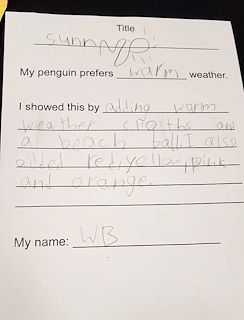 Title
sunny
My penguin prefers warm weather.
I showed this by adding warm
weather cloths and
a beach ball. I also
added red, yellow, pink
and orange.
My name: WB